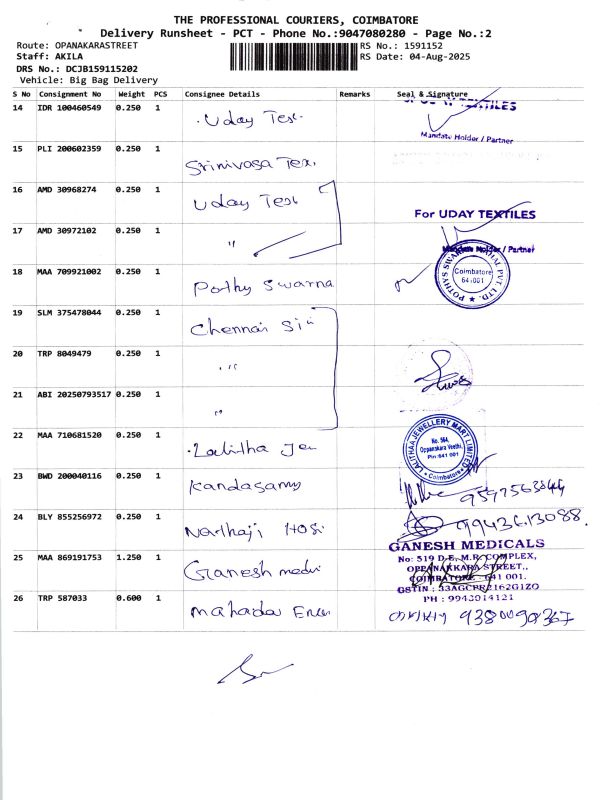 THE PROFESSIONAL COURIERS, COIMBATORE
Delivery Runsheet - PCT - Phone No.:9047080280 - Page No.:2
Route: OPANAKARASTREET
RS No.: 1591152
Staff: AKILA
RS Date: 04-Aug-2025
DRS No.: DCJB159115202
Vehicle: Big Bag Delivery
S No Consignment No Weight PCS Consignee Details Remarks Seal & Signature
14 IDR 100460549 0.250 1 Uday Tex.
UDAY TEXTILES
Mandate Holder / Partner
15 PLI 200602359 0.250 1 Srinivasa Tex.
16 AMD 30968274 0.250 1 Uday Tex
For UDAY TEXTILES
17 AMD 30972102 0.250 1 "
Mandate Holder / Partner
18 MAA 709921002 0.250 1 Pothy Swarna
POTHYS SWARNA MAHAL PVT. LTD.
Coimbatore
641001
19 SLM 375478044 0.250 1 Chennai Sil
20 TRP 8049479 0.250 1 "
21 ABI 20250793517 0.250 1 "
22 MAA 710681520 0.250 1 Lalitha Jew
LALITHAA JEWELLERY MART LIMITED
No. 564,
Oppanakara Veethi,
Pin :641 001
Coimbatore
23 BWD 200040116 0.250 1 Kandasamy
24 BLY 855256972 0.250 1 Nathaji Hosi
9943613088.
25 MAA 869191753 1.250 1 Ganesh medi
GANESH MEDICALS
No: 519 D-E, M.R. COMPLEX,
OPPANAKKARA STREET.,
COIMBATORE - 641 001.
GSTIN : 33AGCPR2162G1ZO
PH : 9943014121
26 TRP 587033 0.600 1 Mahada Enter